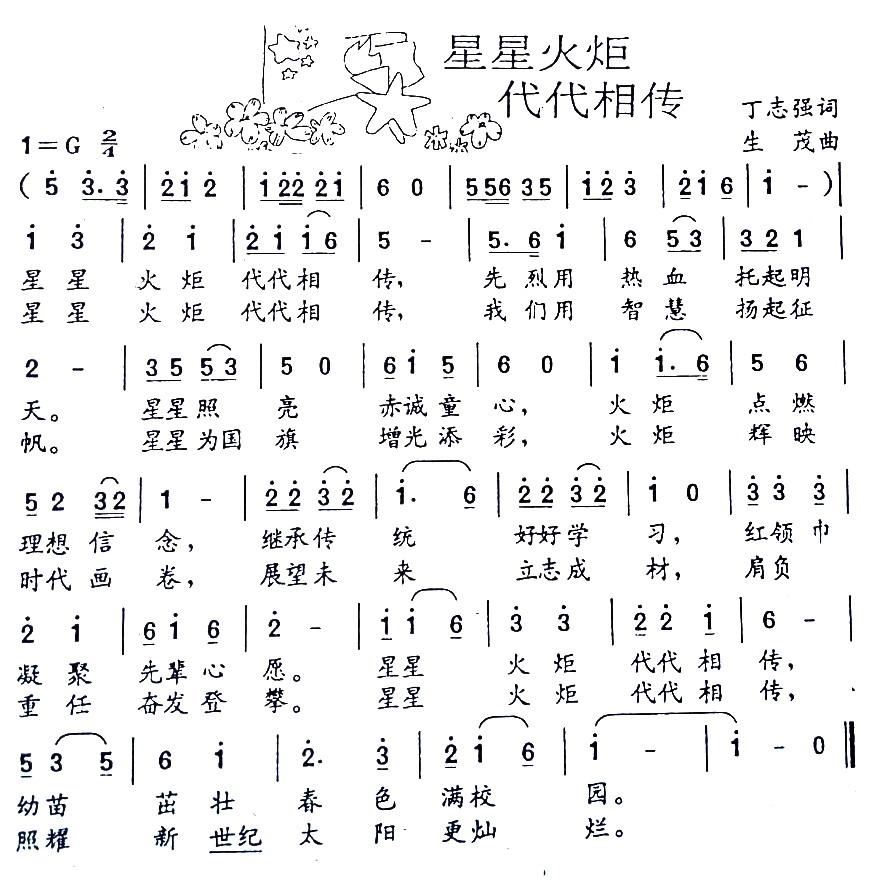 星星火炬
代代相传
丁志强词
1=G 2/4
生 茂曲
( 5 3. 3 | 2 1 2 | 1 2 2 2 1 | 6 0 | 5 5 6 3 5 | 1 2 3 | 2 1 6 | 1 - ) |
1 3 | 2 1 | 2 1 1 6 | 5 - | 5. 6 1 | 6 5 3 | 3 2 1 |
星星 火炬 代代相 传, 先烈用 热血 托起明
星星 火炬 代代相 传, 我们用 智慧 扬起征
2 - | 3 5 5 3 | 5 0 | 6 1 5 | 6 0 | 1 1. 6 | 5 6 |
天。 星星照 亮 赤诚童 心, 火炬 点燃
帆。 星星为国 旗 增光添 彩, 火炬 辉映
5 2 3 2 | 1 - | 2 2 3 2 | 1. 6 | 2 2 3 2 | 1 0 | 3 3 3 |
理想信 念, 继承传 统 好好学 习, 红领巾
时代画 卷, 展望未 来 立志成 材, 肩负
2 1 | 6 1 6 | 2 - | 1 1 6 | 3 3 | 2 2 1 | 6 - |
凝聚 先辈心 愿。 星星 火炬 代代相 传,
重任 奋发登 攀。 星星 火炬 代代相 传,
5 3 5 | 6 1 | 2. 3 | 2 1 6 | 1 - | 1 - 0 ‖
幼苗 茁壮 春色 满校 园。
照耀 新世纪 太阳 更灿 烂。